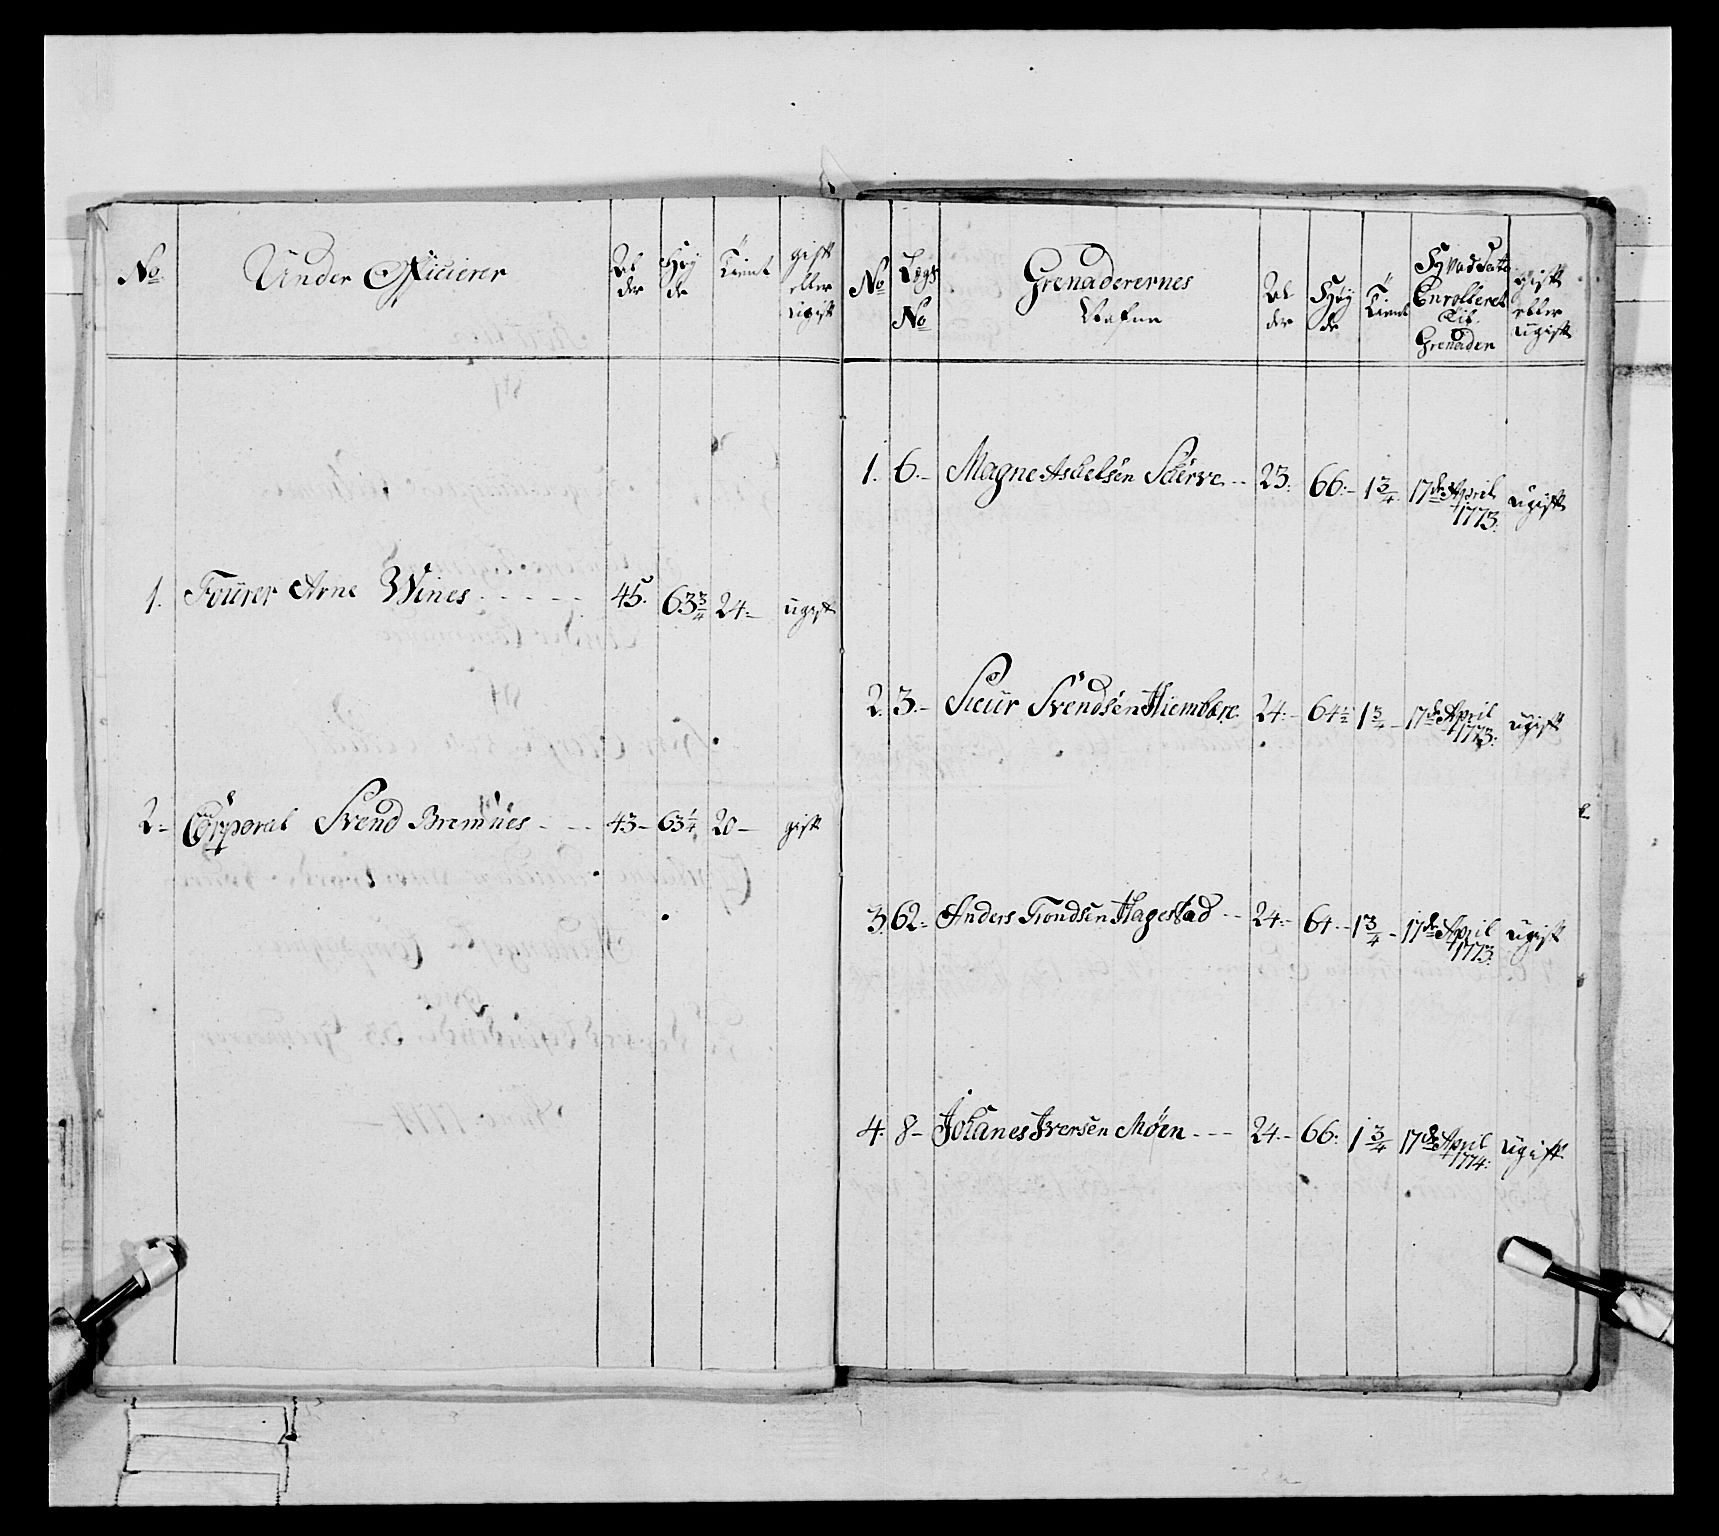 No Under Officierer Al der Høy de Tient gift eller ugift
1. Fourer Arne Wines 45. 63 3/4 24 ugift
2 Corporal Svend Bremnes 43 63 1/4 20 gift
No Lægs No Grenaderernes Nafne Al der Høy de Tient Hvad Datto Enrolleret Til Grenader gift eller ugift
1. 6. Magne Askelsen Skerve 23. 66. 1 3/4 17de April 1773. ugift
2. 3. Siuur Svendsen Hiembere 24. 64 1/2 1 3/4 17de April 1773. ugift
3. 62. Anders Trondsen Hagestad 24. 64. 1 3/4 17de April 1773. ugift
4. 8 Johanes Iversen Møen 24. 66. 1 3/4 17de April 1774. ugift